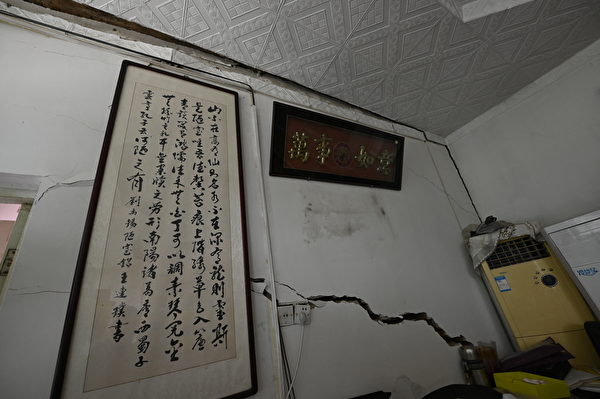 山不在高有仙则名水不在深有龙则靈斯
是陋室惟吾德馨苔痕上階绿草色入簾
青談笑有鴻儒往来無白丁可以調素琴閲金
經無絲竹之亂耳無案牘之勞形南陽諸葛廬西蜀子
雲亭孔子云何陋之有 劉禹锡陋室銘 王連璞書
萬事如意